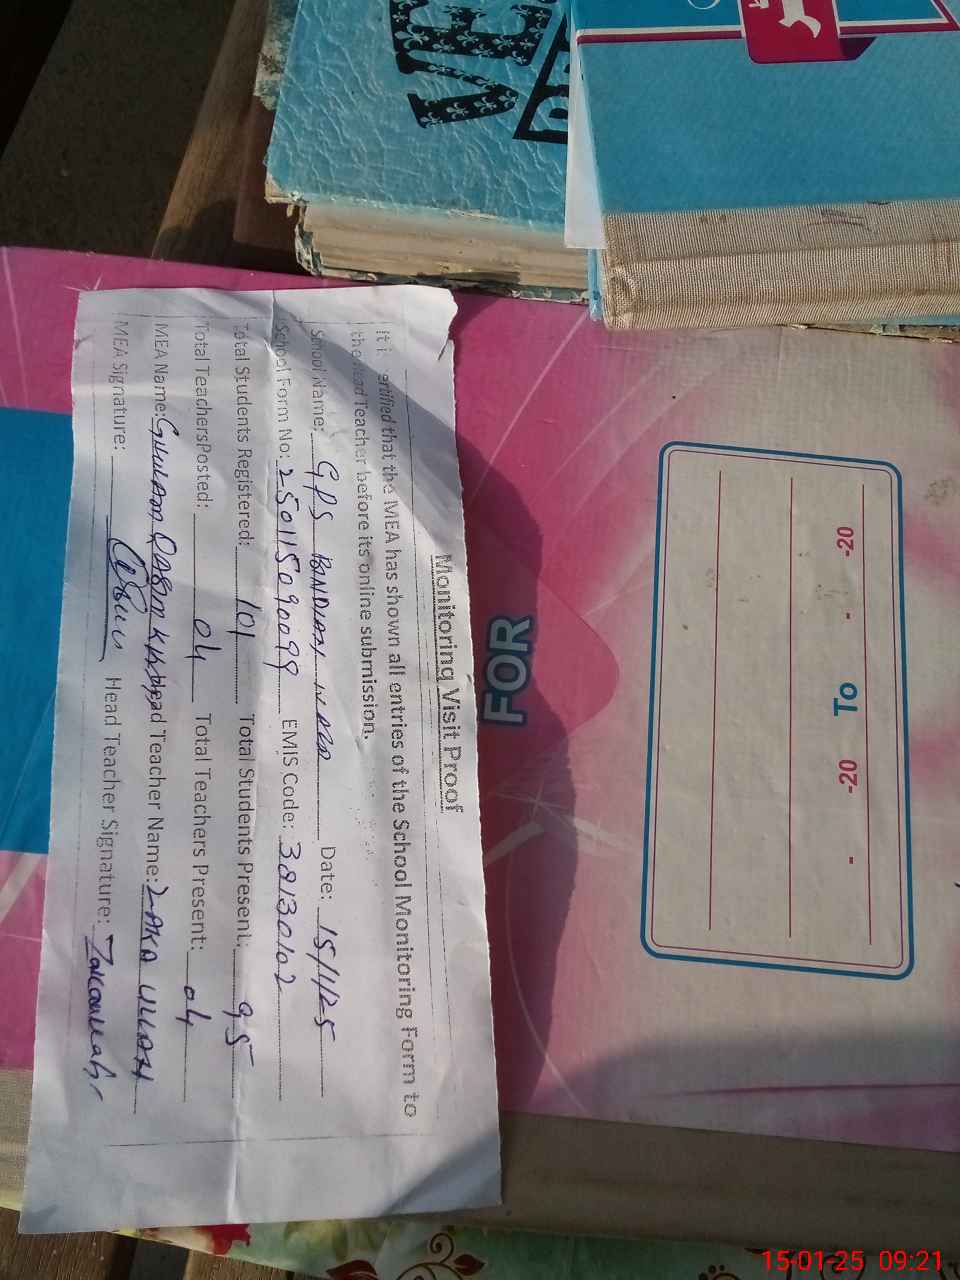 VE
FOR
-20 - - -20 To - -20
Monitoring Visit Proof
It is certified that the MEA has shown all entries of the School Monitoring Form to
the Head Teacher before its online submission.
School Name: GPS Date: 15/1/25
School Form No: 25011509 0099 EMIS Code: 38130102
Total Students Registered: 101 Total Students Present: 95
Total TeachersPosted: 04 Total Teachers Present: 04
MEA Name: GHULAM QASIM KHAN Head Teacher Name: ZAKA ULLAH
MEA Signature: Head Teacher Signature: Zakaullah
15-01-25 09:21